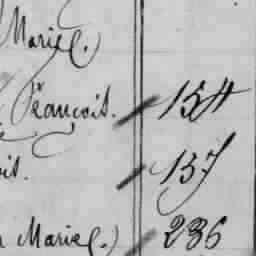 Marie (.)
François. 154
is. 157
Marie (.) 236